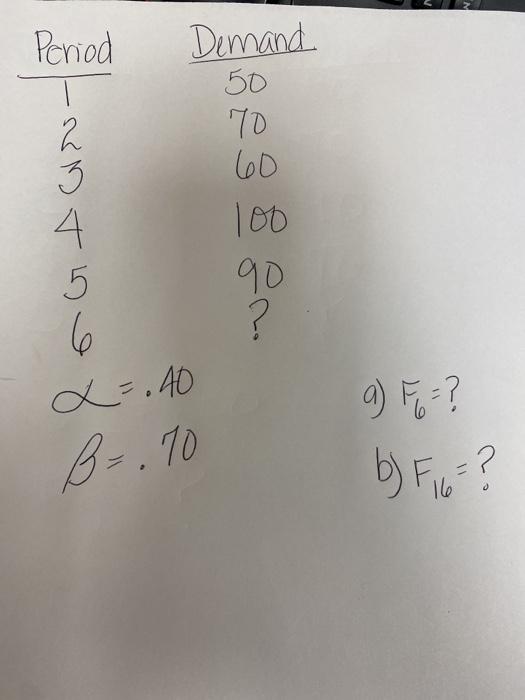 Period Demand
1 50
2 70
3 60
4 100
5 90
6 ?
α = .40
a) F6 = ?
β = .70
b) F16 = ?